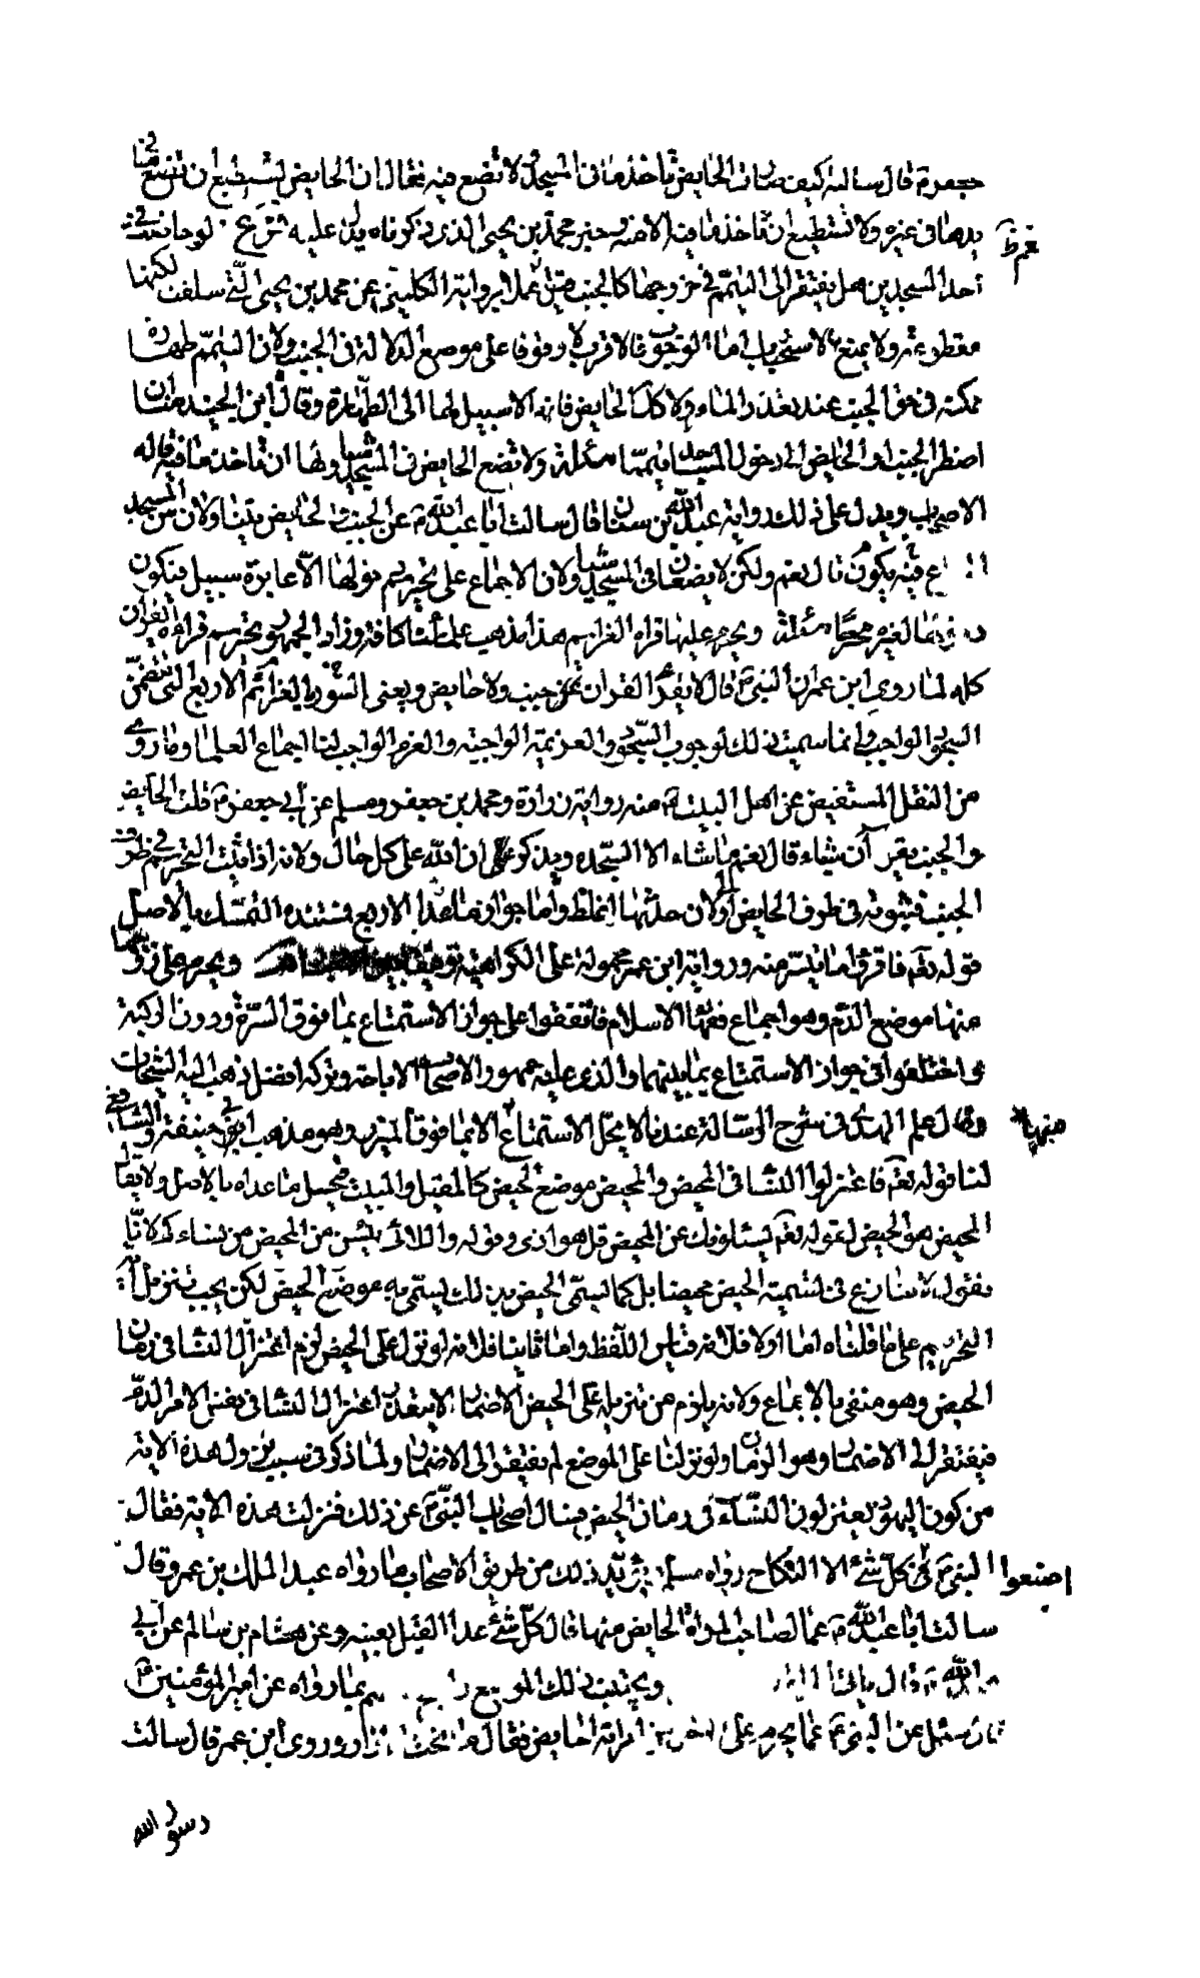 جعفر ع قال سالته كيف صارت الحايض تاخذ ما في المسجد ولا تضع فيه فقال ان الحايض تستطيع ان تضع ما في
يدها في غيره ولا تستطيع ان تاخذ ما فيه الا منه وخبر محمد بن يحيى الذي ذكرناه يدل عليه فرع لو حاضت في
احد المسجدين هل يفتقر الى التيمم في خروجها كالجنب قيل نعم لرواية الكليني عن محمد بن يحيى التي سلفت لكنها
مقطوعة ولا يمنع الاستحباب اما الوجوب فالاقرب لا وقوفا على موضع الدلالة في الجنب ولان التيمم طهارة
ممكنة في حق الجنب عند تعذر الماء ولا كذا الحايض فانه لا سبيل لها الى الطهارة وقال ابن الجنيد منا ان
اضطر الجنب او الحايض الى دخول المسجد تيمما مسئلة ولا تضع الحايض في المسجد شيا ولها ان تاخذ ما فيه قاله
الاصحاب ويدل على ذلك رواية عبد الله بن سنان قال سالت ابا عبد الله ع عن الجنب والحايض يتناولان من المسجد
المتاع فيه يكون قال نعم ولكن لا يضعان في المسجد شيا ولان الاجماع على تحريم دخولها الا عابرة سبيل فيكون
دخولها لغيره محرما مسئلة ويحرم عليها قراة العزايم هذا مذهب علمائنا كافة وزاد الجمهور تحريم قراءة القران
كله لما روى ابن عمر ان النبي ع قال لا يقرأ القران جنب ولا حايض ويعني بالسور العزائم الاربع التي تتضمن
السجود الواجب وانما سميت بذلك لوجوب السجود والعزيمة الواجبة والعزم الواجب لنا اجماع العلماء وما روي
من النقل المستفيض عن اهل البيت ع منه رواية زرارة ومحمد بن مسلم عن ابي جعفر ع قلت الحايض
والجنب يقرآن شيئا قال نعم ما شاء الا السجدة ويذكران الله على كل حال ولانه اذا ثبت التحريم في طرف
الجنب فثبوته في طرف الحايض اولى لان حدثها اغلظ واما جواز ما عدا الاربع فمستنده التمسك بالاصل
قوله تعالى فاقرؤا ما تيسر منه ورواية ابن عمر محمولة على الكراهية توفيقا ويحرم على زوجها
منها موضع الدم وهو اجماع فقهاء الاسلام فاتفقوا على جواز الاستمتاع بما فوق السرة ودون الركبة
واختلفوا في جواز الاستمتاع بما بينهما والذي عليه جمهور الاصحاب الاباحة وتركه افضل ذهب اليه الشيخان
وقال علم الهدى في شرح الرسالة عندنا لا يحل الاستمتاع منها الا بما فوق الميزر وهو مذهب ابي حنيفة والشافعي
لنا قوله تعالى فاعتزلوا النساء في المحيض والمحيض موضع الحيض كالمقيل والمبيت فيحل ما عداه بالاصل ولا يقال
المحيض هو الحيض لقوله تعالى يسئلونك عن المحيض قل هو اذى وقوله واللائي يئسن من المحيض من نسائكم لانا
نقول لا ننازع في تسمية الحيض محيضا بل كما يسمى الحيض بذلك يسمى به موضع الحيض لكن يجب تنزيل آية
التحريم على ما قلناه اما اولا فلانه قياس اللفظ واما ثانيا فلانه لو نزل على الحيض لزم اعتزال النساء في زمان
الحيض وهو منفي بالاجماع ولانه يلزم من تنزيله على الحيض الاضمار اعتزال النساء في نفس الامر الدم
فيفتقر الى الاضمار وهو الزمان ولو نزلنا على الموضع لم يفتقر الى الاضمار ولما ذكر في سبب نزول هذه الاية
من كون اليهود يعتزلون النساء في زمان الحيض فسال اصحاب النبي ع عن ذلك فنزلت هذه الاية فقال
النبي ع اصنعوا كل شئ الا النكاح رواه مسلم يؤيد ذلك من طريق الاصحاب ما رواه عبد الملك بن عمرو قال
سالت ابا عبد الله ع عما لصاحب المراة الحايض منها قال كل شئ عدا القبل بعينه وعن هشام بن سالم عن ابي
عبد الله ع قال ويجتنب ذلك الموضع بما رواه عن امير المؤمنين ع
سئل عن النبي ع عما يحرم على من امراته الحايض فقال ما تحت وروى ابن عمر قال سالت
رسول الله